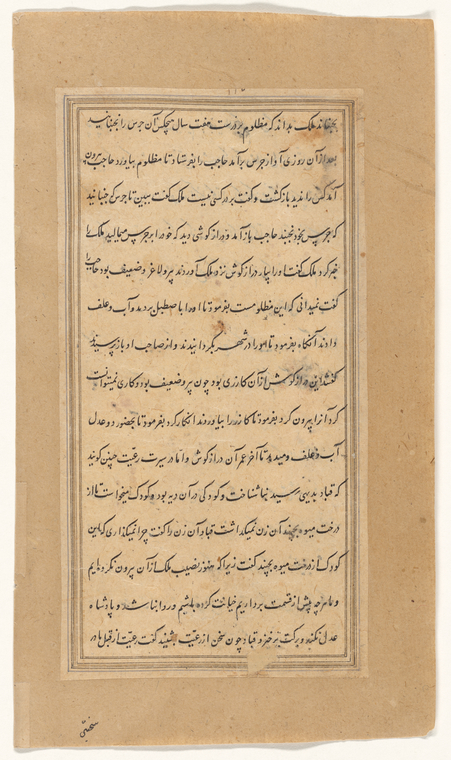 بجنباند ملک بداند که مظلوم بر درست هفت سال هیچکس آن جرس را بجنبانید
بعد از آن روزی آواز جرس برآمد حاجب را بفرستاد تا مظلوم بیاورد حاجب بیرون
آمد کس را ندید بازگشت و گفت بر در کسی نیست ملک گفت ببین تا جرس که جنبانید
که جرس بخود نجنبد حاجب باز آمد و درازگوشی دید که خود را بر جرس میمالید ملک را
خبر کرد ملک گفت او را بیار درازگوش نزد ملک آوردند پیر و لاغر و ضعیف بود حاجب را
گفت نمیدانی که این مظلومست بفرمود تا او را با صطبل بردند و آب و علف
دادند آنگاه بفرمود تا او را در شهر بگردانیدند و از صاحب او باز پرسیدند
گفتند این درازگوش از آن گازری بود چون پیر و ضعیف بود و کاری نمیتوانست
کرد آنرا بیرون کرد بفرمود تا گازر را بیاوردند انکار کرد بفرمود تا بحضور دو عدل
آب و علف میدهد تا آخر عمر آن درازگوش و اما در سیرت رعیت چنین گویند
که قباد بدیهی رسید نیما شناخت و کودکی در آن دیه بود و کودک میخواست تا از
درخت میوه بچیند آن زن نمیگذاشت قباد آن زن را گفت چرا نمیگذاری که این
کودک از درخت میوه بچیند گفت زیرا که هنوز نصیب ملک از آن بیرون نکرده ایم
و ما هرچه پیش از قسمت برداریم خیانت کرده باشیم و روا نباشد و پادشاه
عدل نکند و برکت برخیزد قباد چون سخن از رعیت بشنید گفت رعیت از قبل ما در